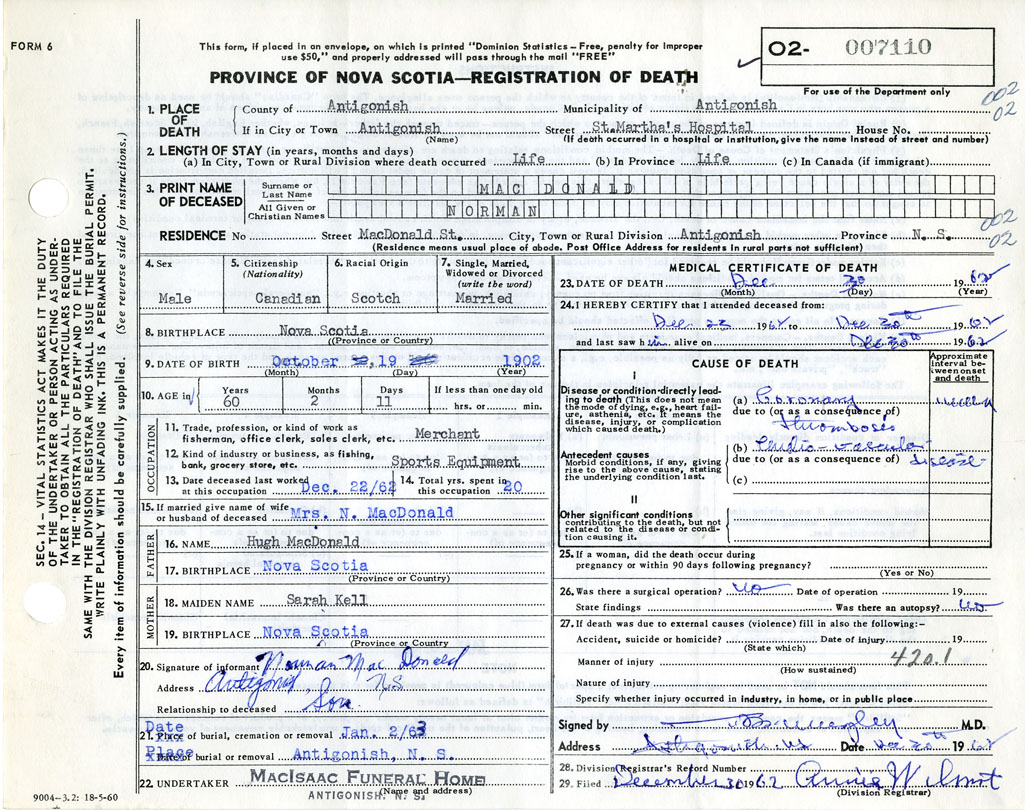 FORM 6
This form, if placed in an envelope, on which is printed "Dominion Statistics – Free, penalty for improper
use $50," and properly addressed will pass through the mail "FREE"
O2- 007110
For use of the Department only
PROVINCE OF NOVA SCOTIA—REGISTRATION OF DEATH
002
02
1. PLACE OF DEATH
County of Antigonish Municipality of Antigonish
If in City or Town Antigonish Street St.Martha's Hospital House No.
(Name) (If death occurred in a hospital or institution, give the name instead of street and number)
2. LENGTH OF STAY (in years, months and days)
(a) In City, Town or Rural Division where death occurred Life (b) In Province Life (c) In Canada (if immigrant)
3. PRINT NAME OF DECEASED
Surname or Last Name MAC DONALD
All Given or Christian Names NORMAN
002
02
RESIDENCE No Street MacDonald St. City, Town or Rural Division Antigonish Province N. S.
(Residence means usual place of abode. Post Office Address for residents in rural parts not sufficient)
4. Sex
Male
5. Citizenship
(Nationality)
Canadian
6. Racial Origin
Scotch
7. Single, Married, Widowed or Divorced
(write the word)
Married
8. BIRTHPLACE Nova Scotia
(Province or Country)
9. DATE OF BIRTH October 19 1902
(Month) (Day) (Year)
10. AGE in
Years Months Days If less than one day old
60 2 11 hrs. or min.
OCCUPATION
11. Trade, profession, or kind of work as
fisherman, office clerk, sales clerk, etc. Merchant
12. Kind of industry or business, as fishing,
bank, grocery store, etc. Sports Equipment
13. Date deceased last worked
at this occupation Dec. 22/62
14. Total yrs. spent in
this occupation 20
15. If married give name of wife
or husband of deceased Mrs. N. MacDonald
FATHER
16. NAME Hugh MacDonald
17. BIRTHPLACE Nova Scotia
(Province or Country)
MOTHER
18. MAIDEN NAME Sarah Kell
19. BIRTHPLACE Nova Scotia
(Province or Country)
20. Signature of informant Norman Mac Donald
Address Antigonish, N.S
Relationship to deceased Son
Date
21. Place of burial, cremation or removal Jan. 2/63
Place
Date of burial or removal Antigonish, N. S.
22. UNDERTAKER MacIsaac Funeral Home
(Name and address)
ANTIGONISH. N. S.
9004–3.2: 18-5-60
SEC. 14 – VITAL STATISTICS ACT MAKES IT THE DUTY
OF THE UNDERTAKER OR PERSON ACTING AS UNDER-
TAKER TO OBTAIN ALL THE PARTICULARS REQUIRED
IN THE "REGISTRATION OF DEATH" AND TO FILE THE
SAME WITH THE DIVISION REGISTRAR WHO SHALL ISSUE THE BURIAL PERMIT.
WRITE PLAINLY WITH UNFADING INK. THIS IS A PERMANENT RECORD.
Every item of information should be carefully supplied. (See reverse side for instructions.)
MEDICAL CERTIFICATE OF DEATH
23. DATE OF DEATH Dec. 30 1962
(Month) (Day) (Year)
24. I HEREBY CERTIFY that I attended deceased from:
Dec. 23 1962 to Dec 30th 1962
and last saw him alive on Dec 30th 1962
CAUSE OF DEATH
Approximate interval between onset and death
I
Disease or condition directly leading to death (This does not mean the mode of dying, e.g., heart failure, asthenia, etc. It means the disease, injury, or complication which caused death.)
(a) Coronary
due to (or as a consequence of)
thrombosis
Antecedent causes
Morbid conditions, if any, giving rise to the above cause, stating the underlying condition last.
(b) Cardio-vascular
due to (or as a consequence of) disease
(c)
II
Other significant conditions
contributing to the death, but not related to the disease or condition causing it.
25. If a woman, did the death occur during
pregnancy or within 90 days following pregnancy?
(Yes or No)
26. Was there a surgical operation? No Date of operation 19
State findings Was there an autopsy? No
27. If death was due to external causes (violence) fill in also the following:–
Accident, suicide or homicide? Date of injury 19
(State which)
Manner of injury 420.1
(How sustained)
Nature of injury
Specify whether injury occurred in industry, in home, or in public place
Signed by M.D.
Address Antigonish NS Date Dec 30th 1962
28. Division Registrar's Record Number
29. Filed December 30 1962 Annie Wilmot
(Division Registrar)